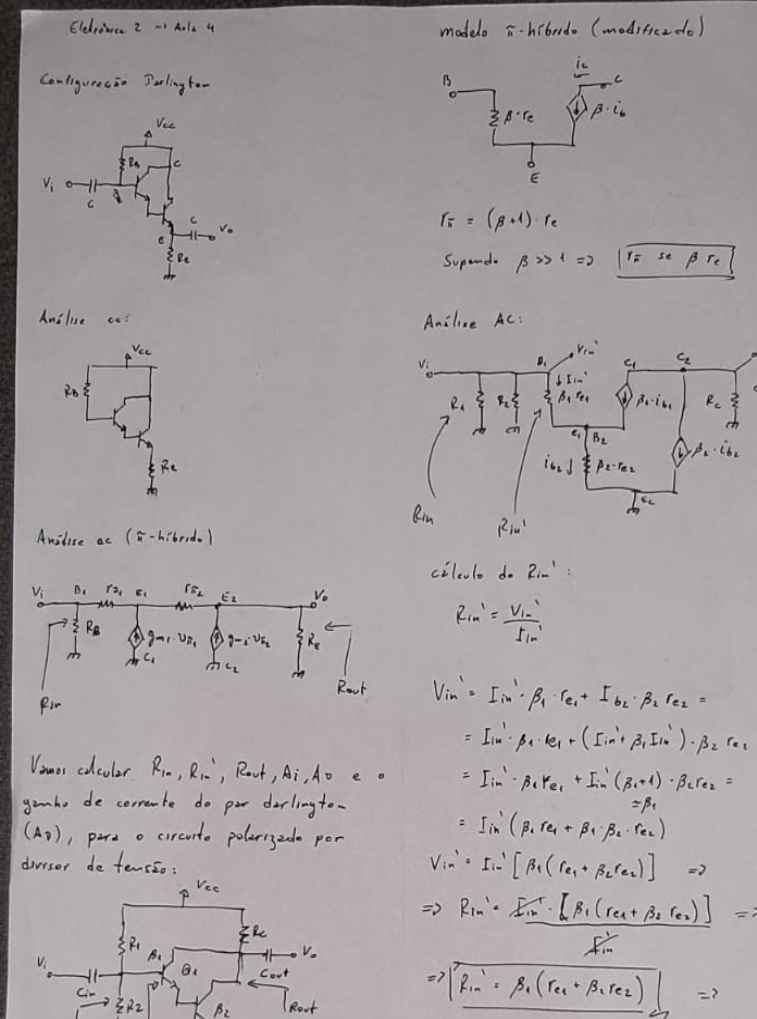 Eletrônica 2 → Aula 4
Configuração Darlington
Vcc
RB
C
Vi
C
B
C
E
Vo
RE
Análise cc:
Vcc
RB
RE
Análise ac (π-híbrido)
Vi
B1
rπ1
E1
rπ2
E2
Vo
RB
gm1·vπ1
gm2·vπ2
RE
C1
C2
Rin
Rout
Vamos calcular Rin, Rin', Rout, Ai, Av e o
ganho de corrente do par darlington
(AD), para o circuito polarizado por
divisor de tensão:
Vcc
R1
RC
β1
Q1
Vo
Vi
Cout
Cin
R2
β2
Rout
modelo π-híbrido (modificado)
ic
B
C
β·re
β·ib
E
rπ = (β+1)·re
Supondo β >> 1 => rπ se β re
Análise AC:
Vi
B1
Vin'
C1
C2
Iin'
R1
R2
β1 re1
β1·ib1
RC
E1
B2
ib2
β2·re2
β2·ib2
E2
Rin
Rin'
cálculo do Rin':
Rin' = Vin'/Iin'
Vin' = Iin'·β1·re1 + Ib2·β2 re2 =
= Iin'·β1·re1 + (Iin' + β1 Iin')·β2 re2
= Iin'·β1 re1 + Iin' (β1+1)·β2 re2 =
≃β1
= Iin' (β1 re1 + β1·β2·re2)
Vin' = Iin' [β1 (re1 + β2 re2)] =>
=> Rin' = Iin'·[β1 (re1 + β2 re2)] =>
Iin'
=> Rin' = β1 (re1 + β2 re2) =>